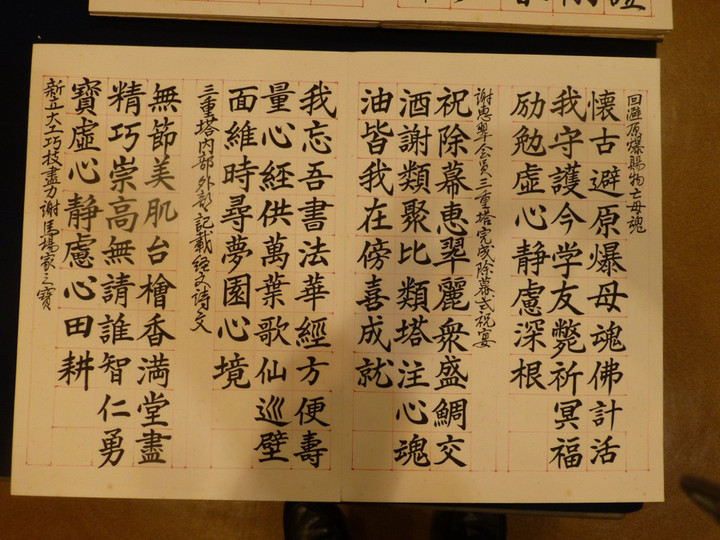 回避原爆賜物亡母魂
懐古避原爆母魂佛計活
我守護今学友斃祈冥福
励勉虚心静慮深根
謝恵翠会員三重塔完成除幕式祝宴
祝除幕恵翠麗衆盛鯛交
酒謝類聚比類塔注心魂
油皆我在傍喜成就
我忘吾書法華經方便壽
量心經供萬葉歌仙巡壁
面維時尋夢園心境
三重塔内部外部記載経文詩文
無節美肌台檜香満堂盡
精巧崇高無請誰智仁勇
寶虚心静慮心田耕
新立大工巧技盡力謝馬場家之寶